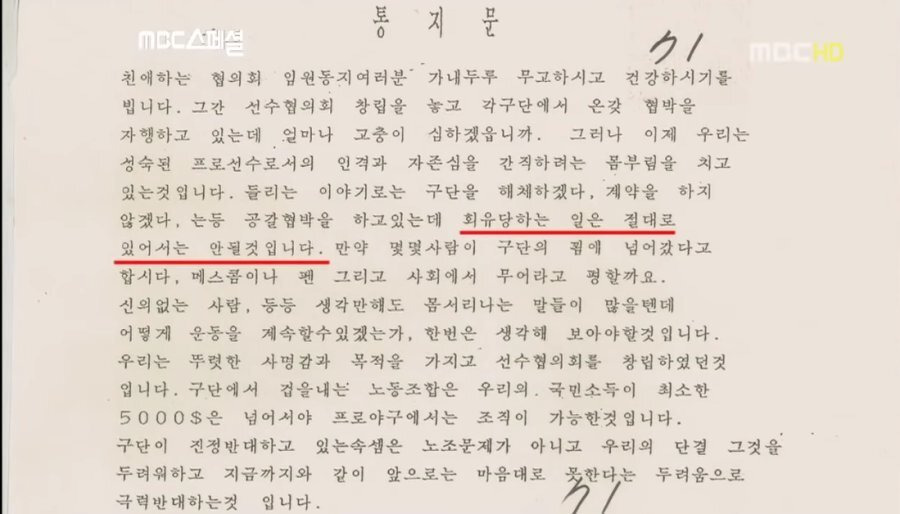 통 지 문
MBC스페셜
MBC HD
친애하는 협의회 임원동지여러분 가내두루 무고하시고 건강하시기를
빕니다. 그간 선수협의회 창립을 놓고 각구단에서 온갖 협박을
자행하고 있는데 얼마나 고충이 심하겠읍니까. 그러나 이제 우리는
성숙된 프로선수로서의 인격과 자존심을 간직하려는 몸부림을 치고
있는것입니다. 들리는 이야기로는 구단을 해체하겠다, 계약을 하지
않겠다, 는등 공갈협박을 하고있는데 회유당하는 일은 절대로
있어서는 안될것입니다. 만약 몇몇사람이 구단의 꾐에 넘어갔다고
합시다, 메스콤이나 펜 그리고 사회에서 무어라고 평할까요.
신의없는 사람, 등등 생각만해도 몸서리나는 말들이 많을텐데
어떻게 운동을 계속할수있겠는가, 한번은 생각해 보아야할것입니다.
우리는 뚜렷한 사명감과 목적을 가지고 선수협의회를 창립하였던것
입니다. 구단에서 겁을내는 노동조합은 우리의. 국민소득이 최소한
5000$은 넘어서야 프로야구에서는 조직이 가능한것입니다.
구단이 진정반대하고 있는속셈은 노조문제가 아니고 우리의 단결 그것을
두려워하고 지금까지와 같이 앞으로는 마음대로 못한다는 두려움으로
극력반대하는것 입니다.